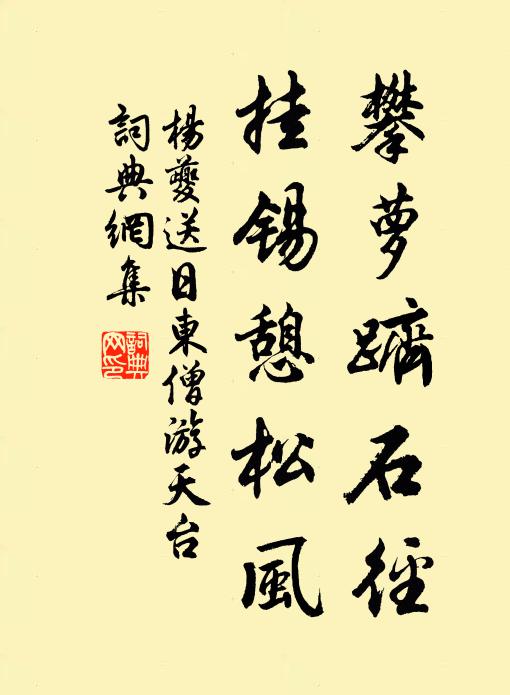 攀萝躋石徑
挂锡憩松風
楊夔送日東僧游天台
詞典網集
詞典
网印